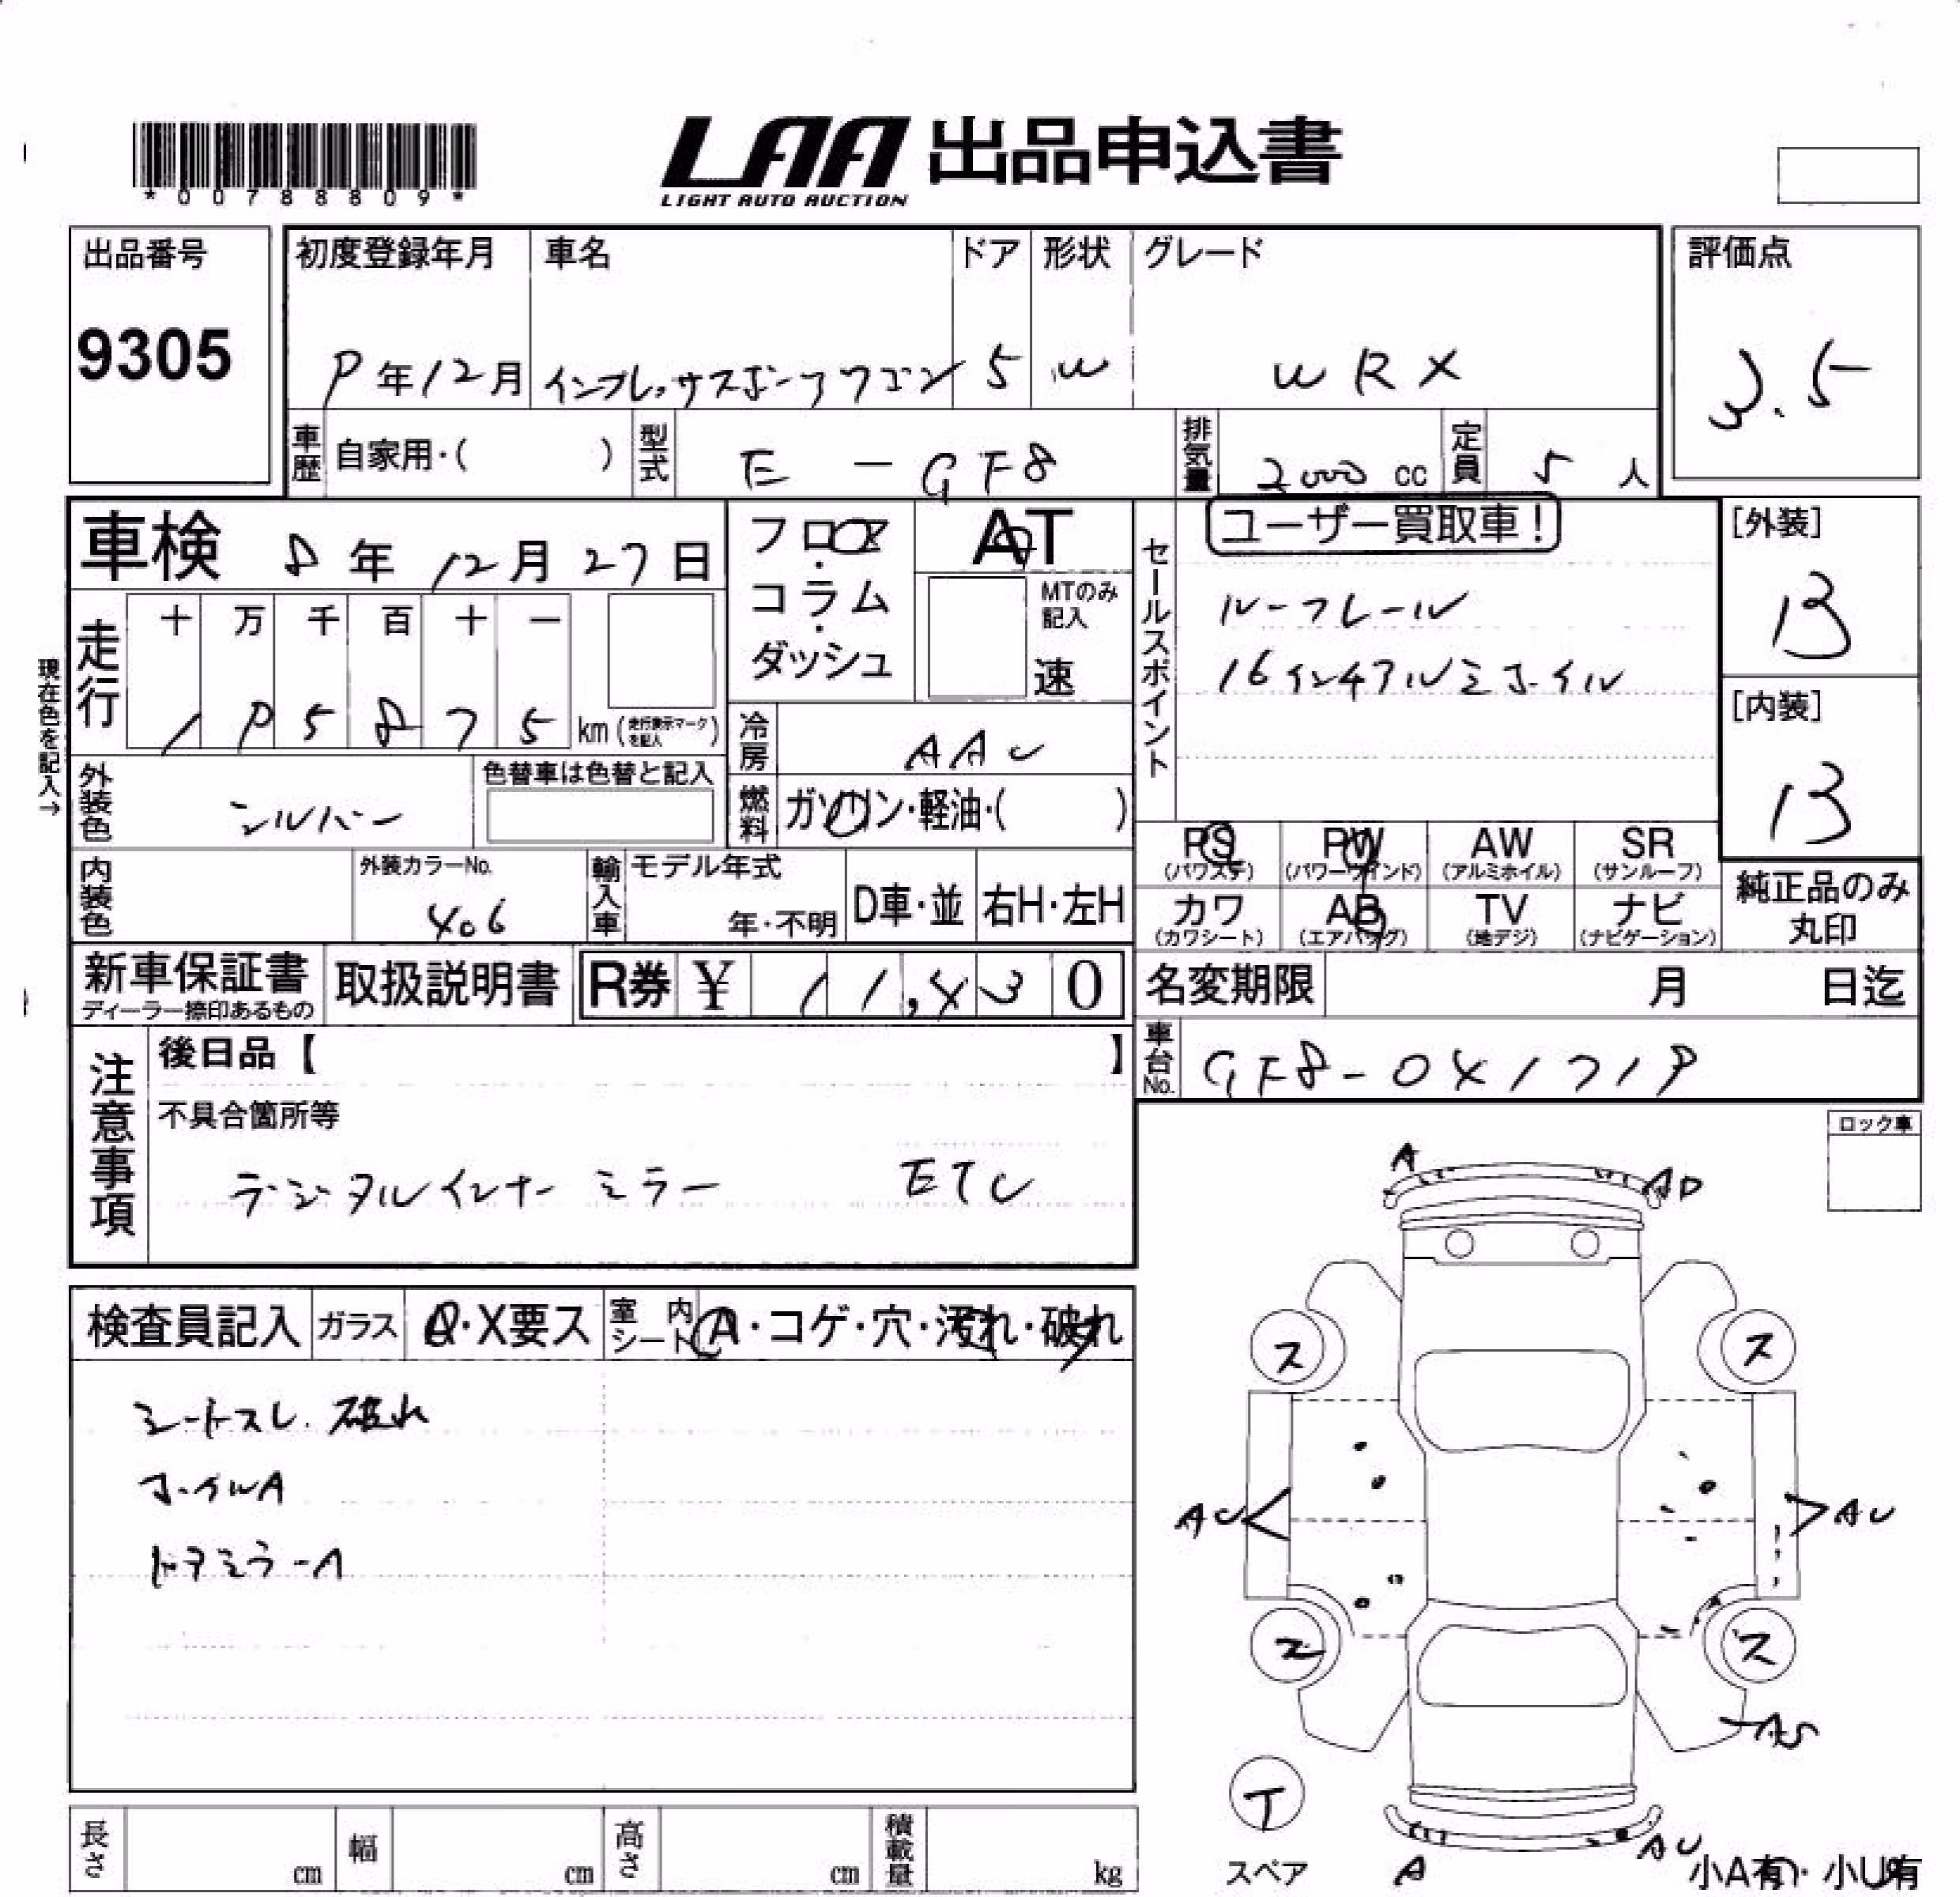 *00788809*
LAA 出品申込書
LIGHT AUTO AUCTION
出品番号
9305
初度登録年月 車名 ドア 形状 グレード
9年12月 インプレッサスポーツワゴン 5 W WRX
評価点
3.5
車歴 自家用・( ) 型式 E-GF8 排気量 2000cc 定員 5人
車検 8年12月27日
フロア
コラム
ダッシュ
AT
MTのみ記入
速
現在色を記入→
走行 十 万 千 百 十 一
195875 km (走行表示マークを記入)
セールスポイント
ユーザー買取車!
ルーフレール
16インチアルミホイル
[外装]
B
[内装]
B
冷房 AAC
燃料 ガソリン・軽油・( )
外装色 シルバー 色替車は色替と記入
内装色 外装カラーNo. 406
輸入車 モデル年式 年・不明 D車・並 右H・左H
PS (パワステ) PW (パワーウインド) AW (アルミホイル) SR (サンルーフ)
カワ (カワシート) AB (エアバッグ) TV (地デジ) ナビ (ナビゲーション)
純正品のみ
丸印
新車保証書 ディーラー捺印あるもの
取扱説明書
R券 ¥ 11,430
名変期限 月 日迄
車台No. GF8-041719
注意事項
後日品【 】
不具合箇所等
デジタルインナーミラー ETC
ロック車
検査員記入 ガラス A・X要ス 室内シート A・コゲ・穴・汚れ・破れ
シートスレ. 破れ
ホイルA
ドアミラーA
A
AD
ス ス
AU AU
ス ス
AS
T
スペア
A
AU
小A有・小U有
長さ cm 幅 cm 高さ cm 積載量 kg